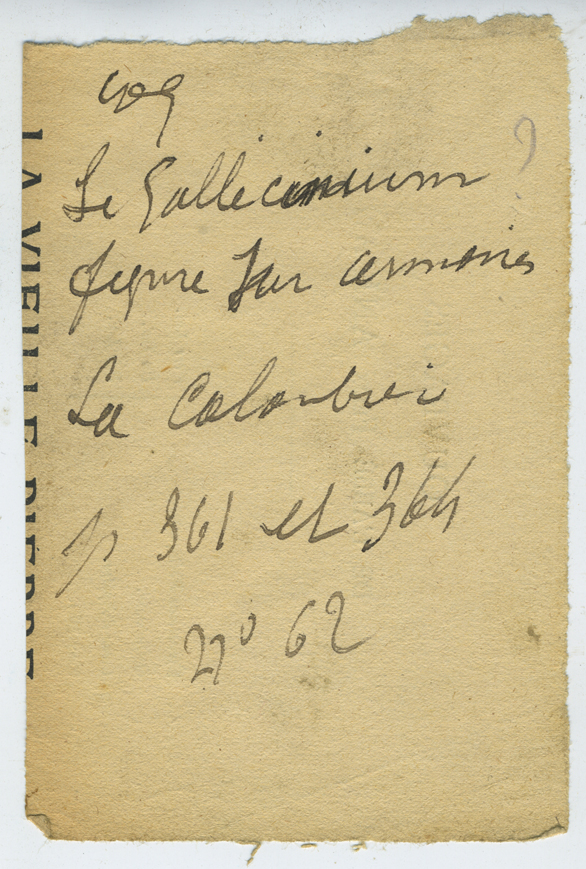 Le Gallicinium ?
figure sur armoiries
La Colombiè
p 361 et 364
no 62
LA VIEILLE PIERRE